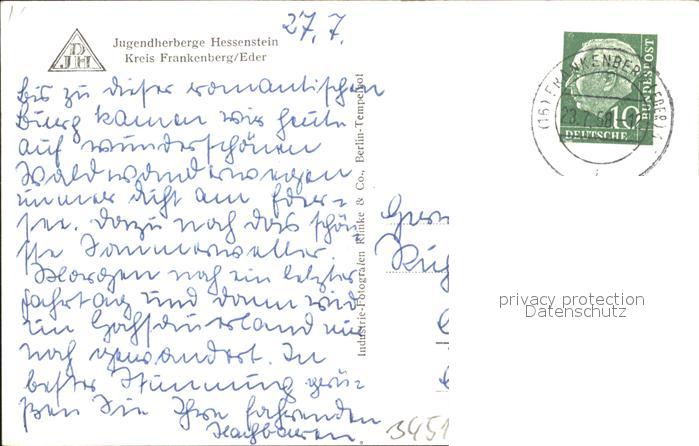 27. 7.
DJH
Jugendherberge Hessenstein
Kreis Frankenberg/Eder
Bis zu dieser romantischen
Burg kamen wir heute
auf wunderschönen
Waldwanderwegen
immer dicht am Eder-
see. Dazu noch das schön-
ste Sommerwetter.
Morgen noch ein letzter
Fahrttag und dann wird
im Hochsauerland nur
noch gewandert. In
bester Stimmung grü-
ßen Sie Ihre fahrenden
Nachbarn.
Industrie-Fotografen Klinke & Co., Berlin-Tempelhof
(16) FRANKENBERG (EDER)
28.7.58
10
DEUTSCHE
BUNDESPOST
privacy protection
Datenschutz
3451